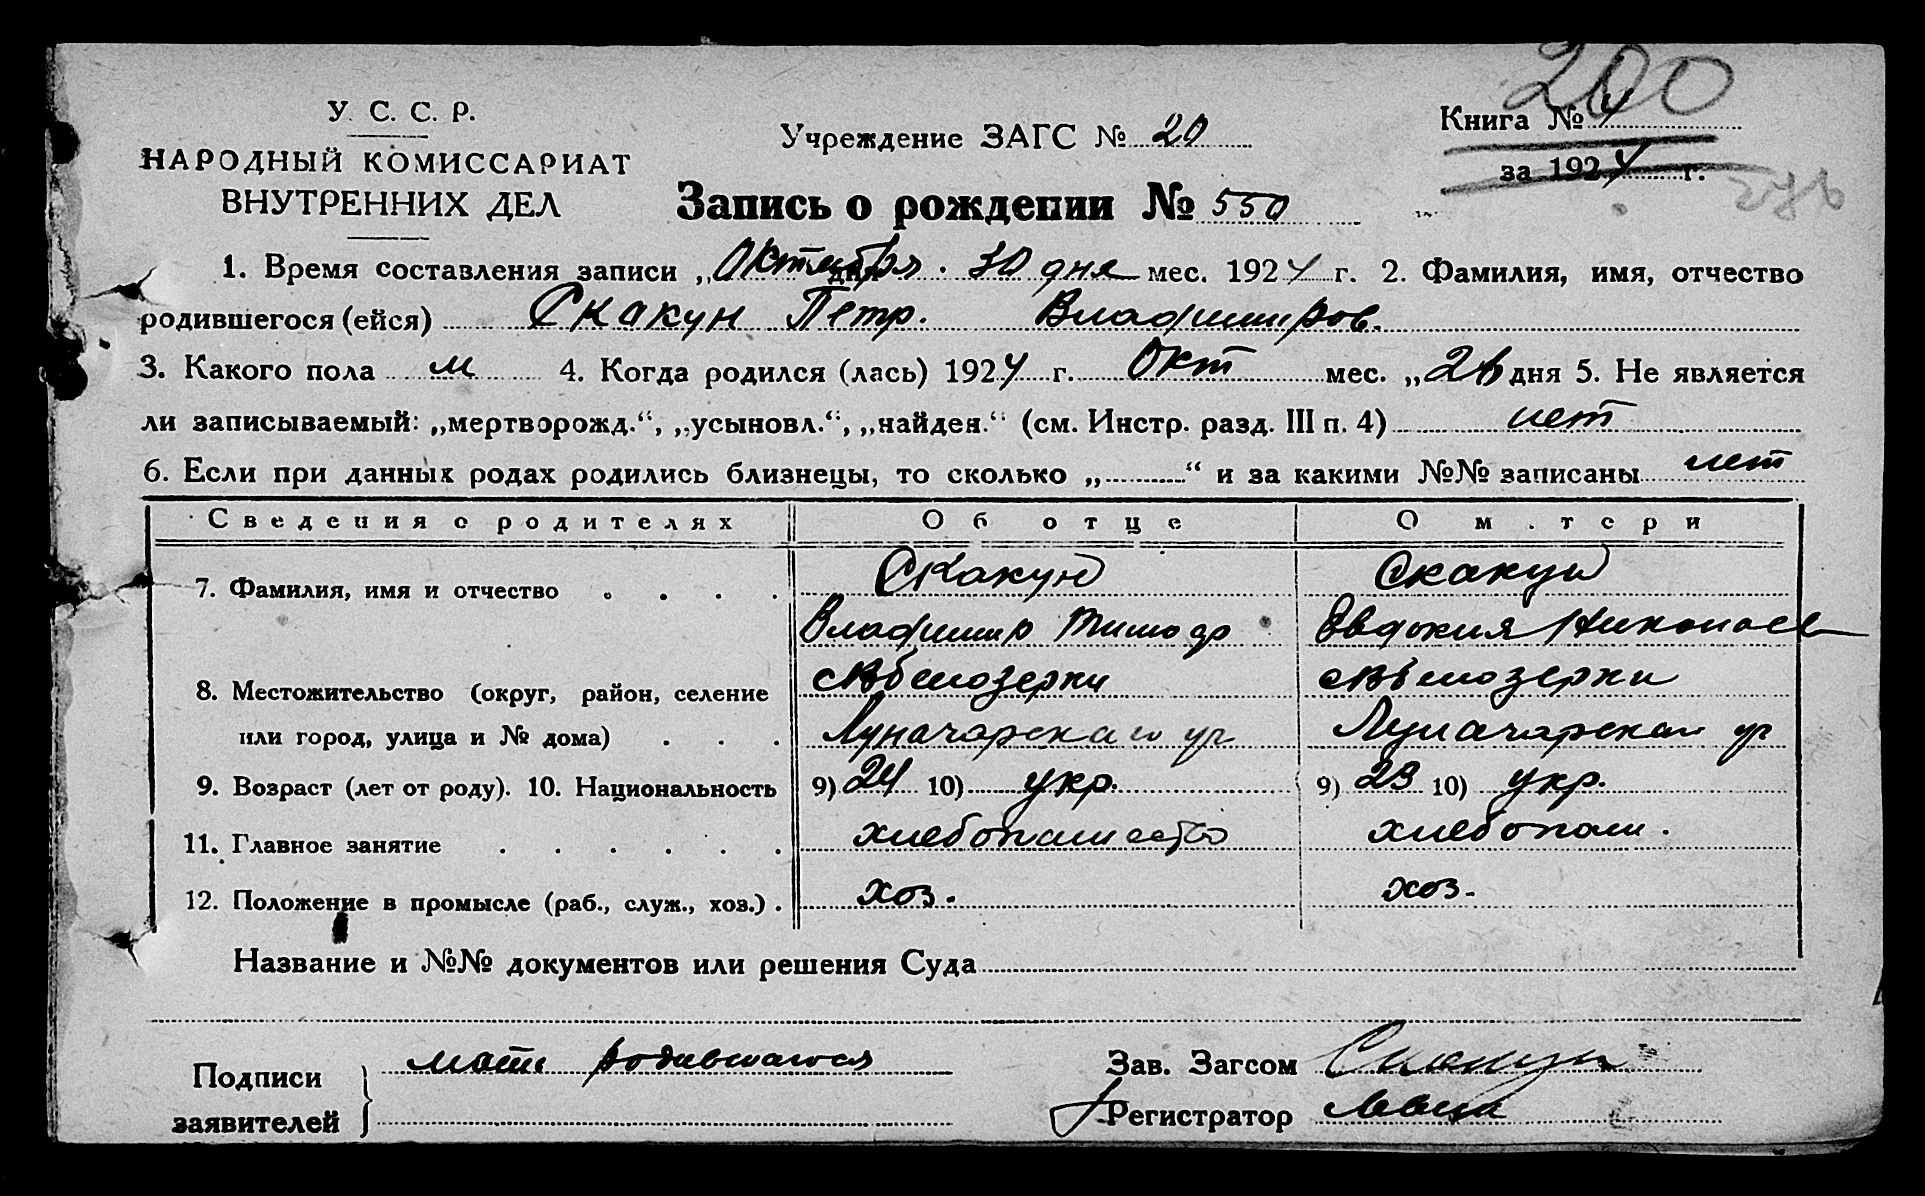 200
У. С. С. Р.
НАРОДНЫЙ КОМИССАРИАТ
ВНУТРЕННИХ ДЕЛ
Учреждение ЗАГС № 20
Книга № 4
за 1924 г.
Запись о рождении № 550
1. Время составления записи „Октября 30 дня мес. 1924 г. 2. Фамилия, имя, отчество
родившегося (ейся) Скакун Петр. Владимиров.
3. Какого пола м 4. Когда родился (лась) 1924 г. Окт мес. „ дня 5. Не является
ли записываемый: „мертворожд.“, „усыновл.“, „найден.“ (см. Инстр. разд. III п. 4) нет
6. Если при данных родах родились близнецы, то сколько „ “ и за какими №№ записаны нет
Сведения о родителях Об отце О м.тери
7. Фамилия, имя и отчество Скакун Скакун
Владимир Тимо Евдокия Николаев
8. Местожительство (округ, район, селение Белозерки Белозерки
или город, улица и № дома) Луначарская ул Луначарская ул
9. Возраст (лет от роду). 10. Национальность 9) 24 10) укр. 9) 23 10) укр.
11. Главное занятие хлебопашество хлебопаш.
12. Положение в промысле (раб., служ., хоз.) хоз. хоз.
Название и №№ документов или решения Суда
Подписи мать родившагося
заявителей
Зав. Загсом
Регистратор